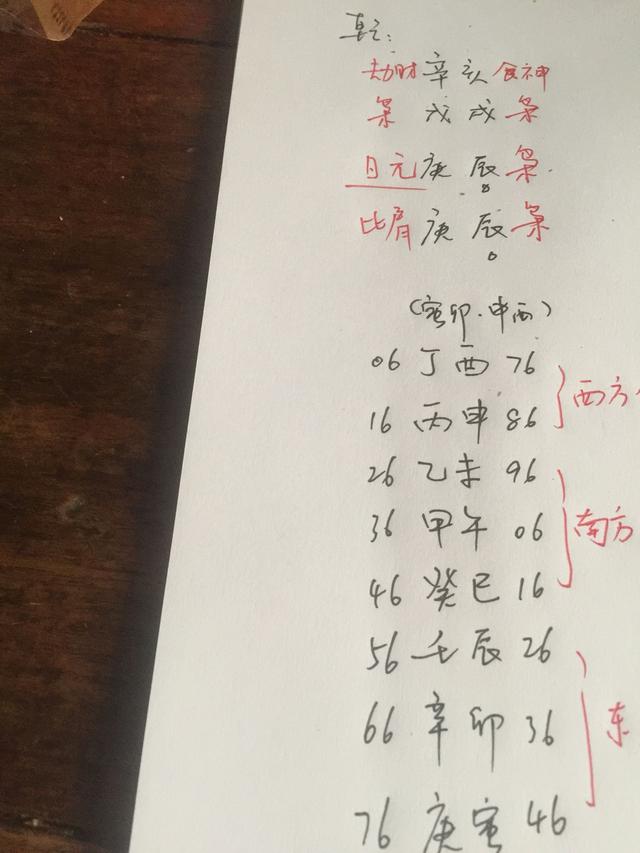 乾:
劫财 辛 亥 食神
枭 戊 戌 枭
日元 庚 辰 枭
比肩 庚 辰 枭
(寅卯.申酉)
06 丁酉 76
16 丙申 86 西方
26 乙未 96
36 甲午 06 南方
46 癸巳 16
56 壬辰 26
66 辛卯 36 东
76 庚寅 46